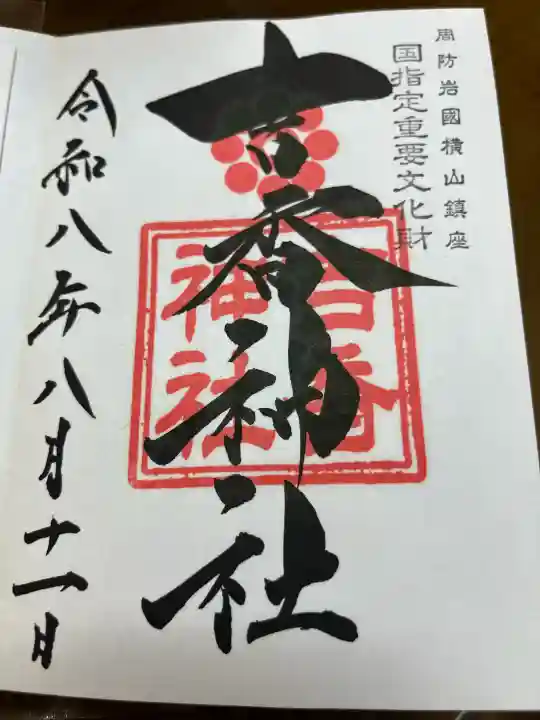 周防岩國横山鎮座
国指定重要文化財
吉香神社
吉香
神社
令和八年八月十一日